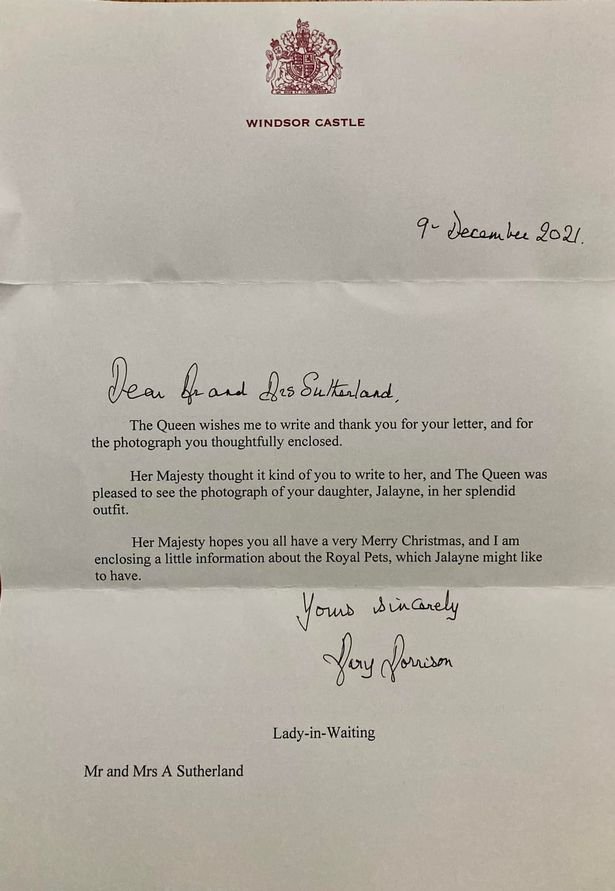 WINDSOR CASTLE
9th December 2021.
Dear Mr and Mrs Sutherland,
The Queen wishes me to write and thank you for your letter, and for
the photograph you thoughtfully enclosed.
Her Majesty thought it kind of you to write to her, and The Queen was
pleased to see the photograph of your daughter, Jalayne, in her splendid
outfit.
Her Majesty hopes you all have a very Merry Christmas, and I am
enclosing a little information about the Royal Pets, which Jalayne might like
to have.
Yours sincerely
Mary Morrison
Lady-in-Waiting
Mr and Mrs A Sutherland